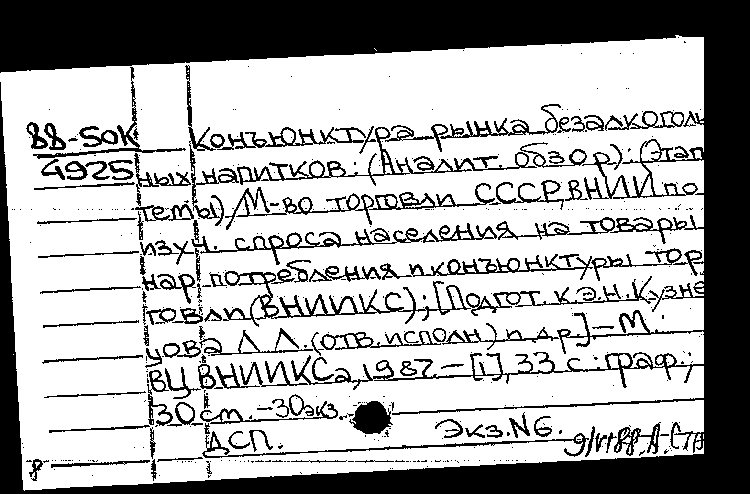 88-5ОК Конъюнктура рынка безалкоголь
4925 ных напитков: (Аналит. обзор): (Этап
темы)/М-во торговли СССР, ВНИИ по
изуч. спроса населения на товары
нар потребления и конъюнктуры тор
говли (ВНИИКС); [Подгот. к.э.н. Кузне
цова Л Л. (отв. исполн) и др.] – М.:
ВЦ ВНИИКСа, 1987. – [1], 33 с.: граф.;
30 см. – 30 экз.
ДСП. Экз. N6. 9/VI 88
8